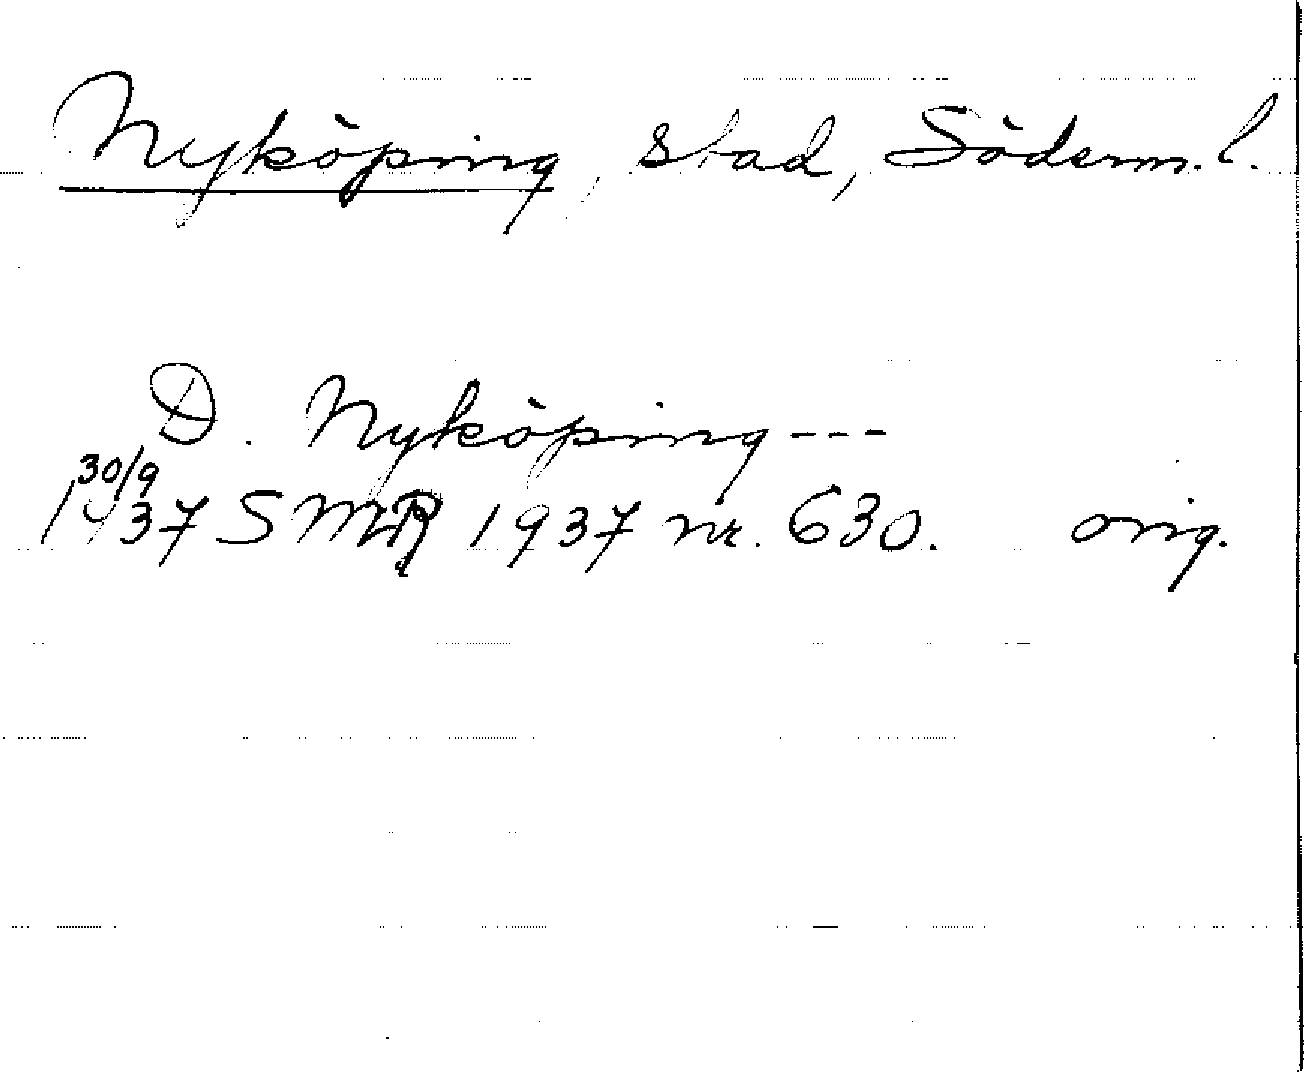 Nyköping, stad, Söderm. l.
D. Nyköping---
30/9
1937 SMR 1937 nr. 630. orig.